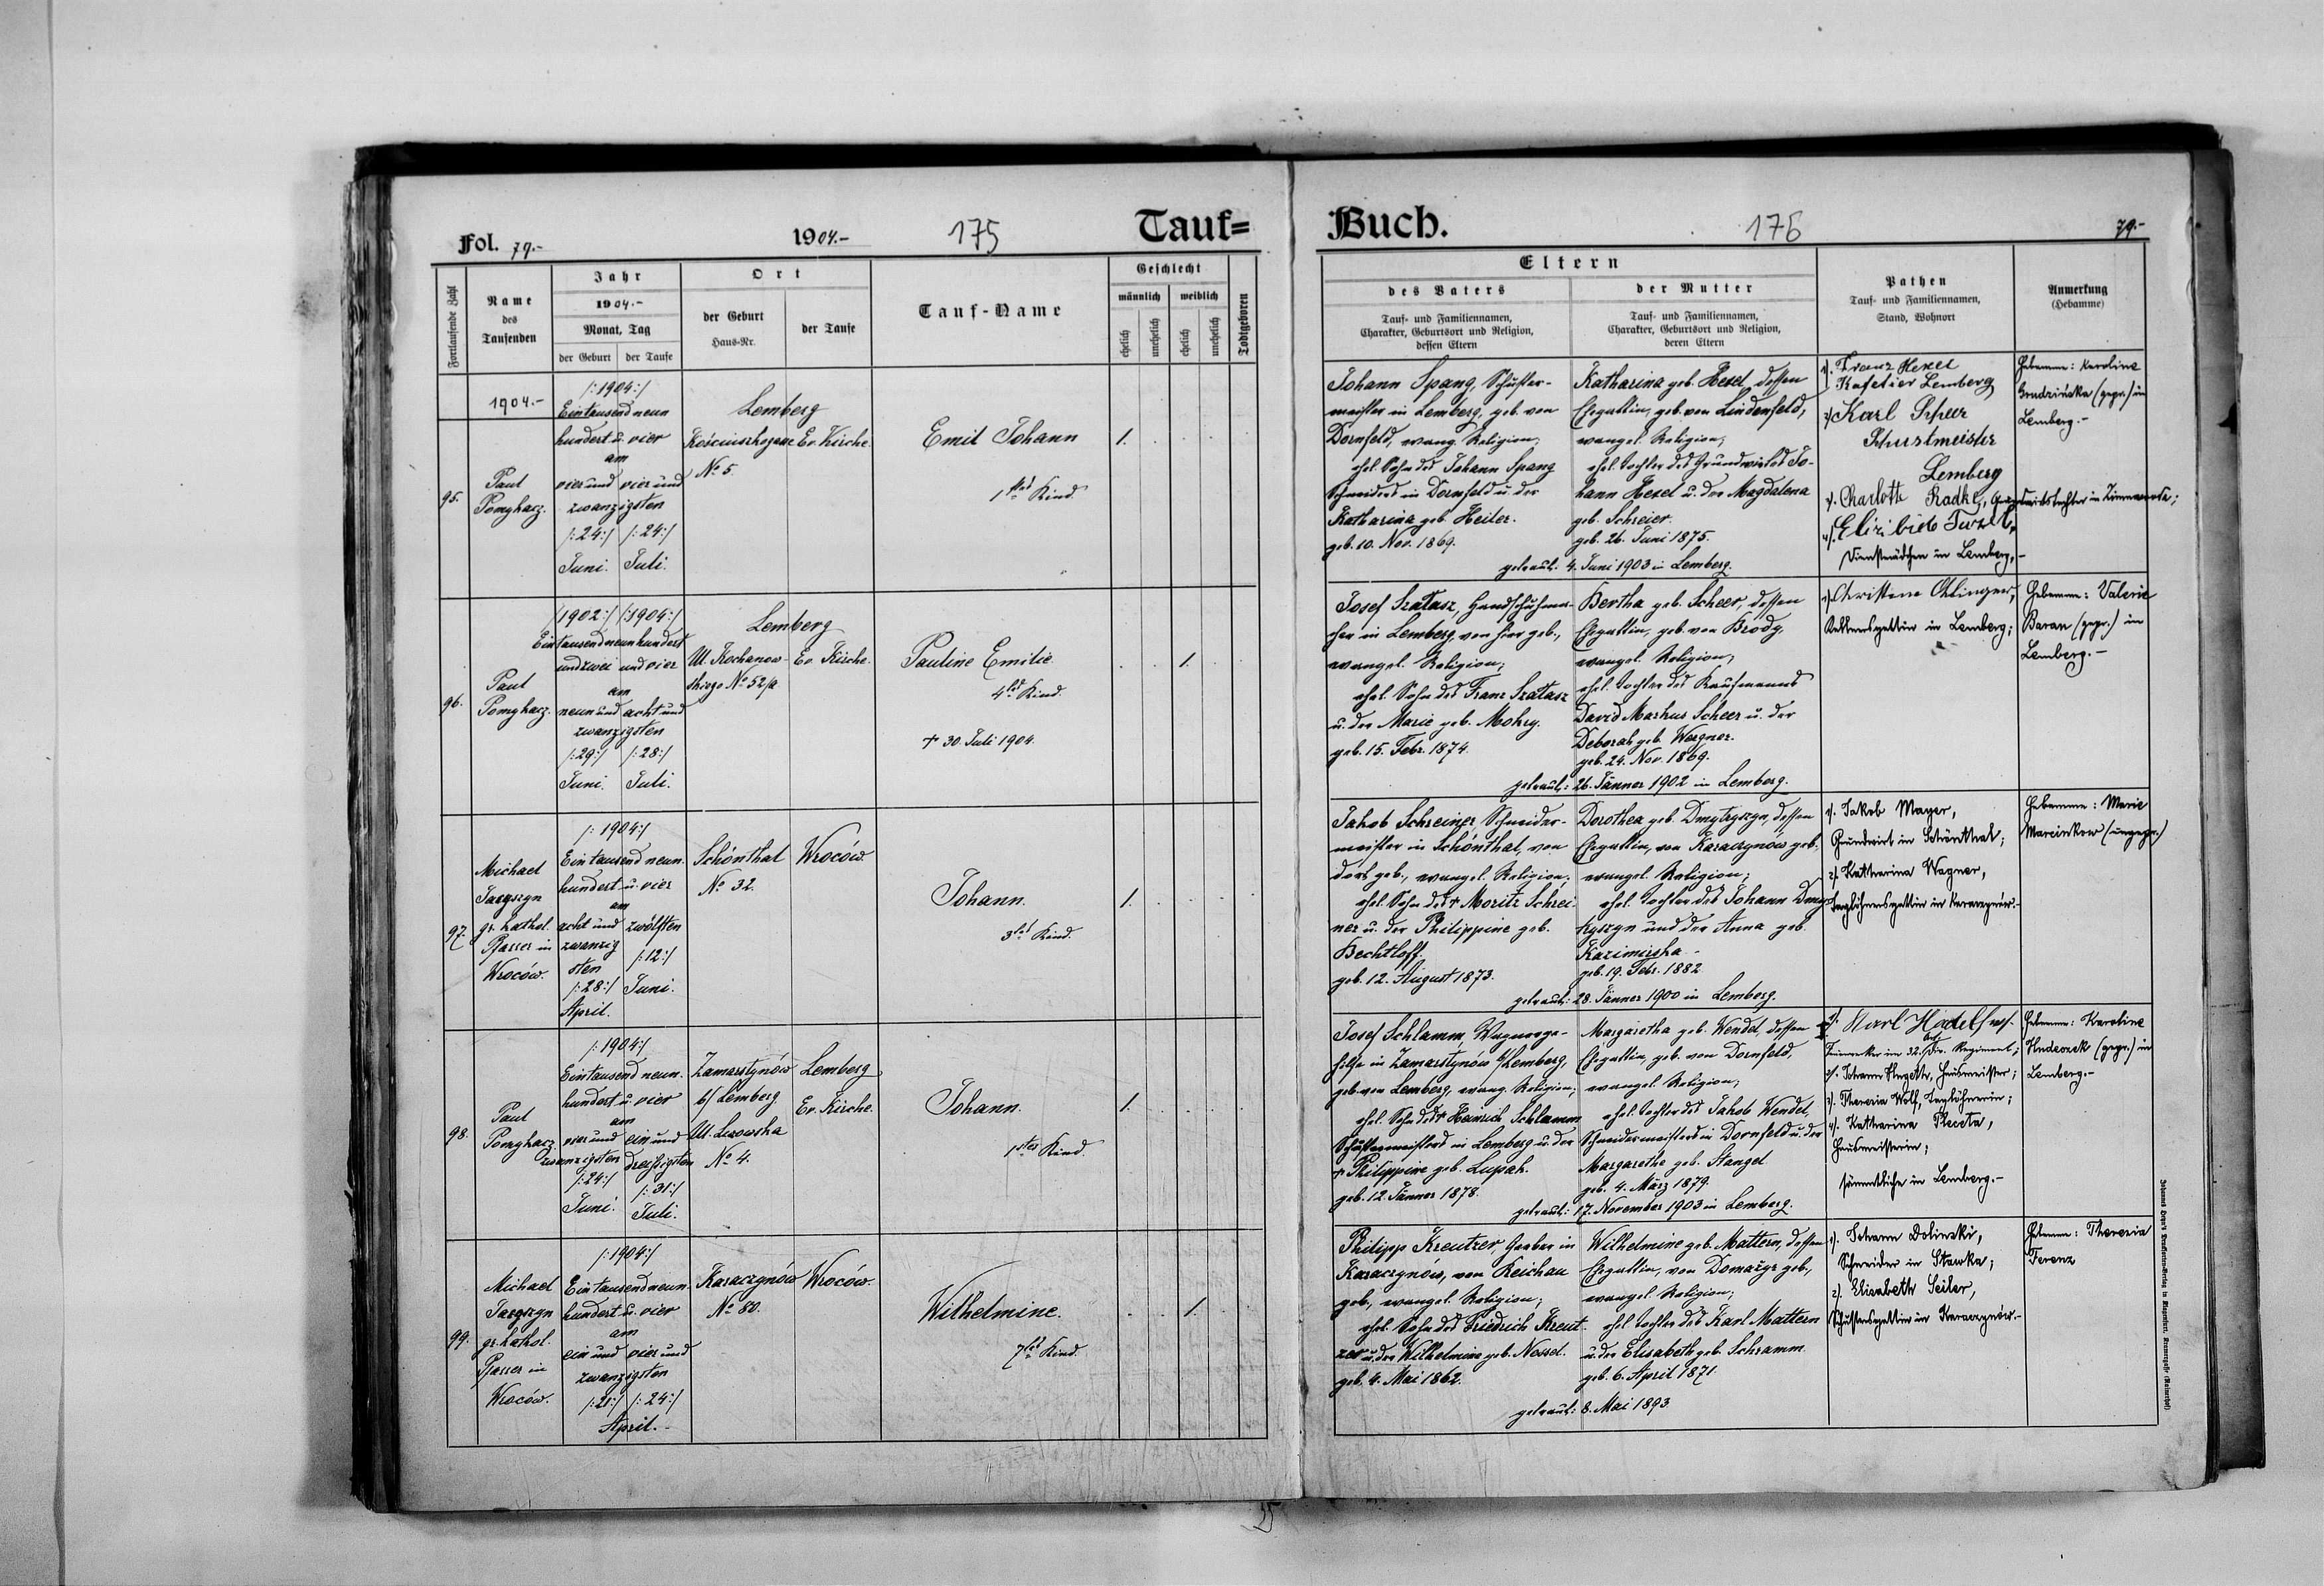 Fol. 79.-
1904.-
175
Tauf=
Fortlaufende Zahl
Name
des
Taufenden
Jahr
1904.-
Monat, Tag
der Geburt
der Taufe
Ort
der Geburt
Haus-Nr.
der Taufe
Tauf-Name
Geschlecht
männlich
weiblich
ehelich
unehelich
ehelich
unehelich
Todtgeboren
1904.-
95.
Paul
Pomykacz.
/:1904:/
Eintausend neun
hundert u. vier
am
vier und vier und
zwanzigsten
/:24:/ /:24:/
Juni. Juli.
Lemberg
Ev. Kirche.
No 5
Emil Johann
1tes Kind.
1.
96.
Paul
Pomykacz.
/1902:/ /:1904:/
Eintausendneunhundert
und zwei und vier
am
neun und acht und
zwanzigsten
/:29:/ /:28:/
Juni. Juli.
Lemberg
Ul. Kochanow- Ev. Kirche.
skiego No 52/a
Pauline Emilie
4tes Kind.
+ 30. Juli 1904.
1.
97.
Michael
gr. kathol.
Pfarrer in
Wroców.
/:1904:/
Eintausend neun.
hundert u. vier
am
acht und zwölften
zwanzig
sten /:12:/
/:28:/ Juni.
April.
Schönthal Wroców.
No 32.
Johann.
3tes Kind.
1.
98.
Paul
Pomykacz
/:1904:/
Eintausend neun.
hundert u. vier
am
vier und ein und
zwanzigsten dreißigsten
/:24:/ /:31:/
Juni. Juli.
Zamarstynów Lemberg
b/ Lemberg Ev. Kirche.
No 4.
Johann.
1stes Kind.
1.
99.
Michael
gr. kathol.
Pfarrer in
Wroców.
/:1904:/
Eintausend neun.
hundert u. vier
am
ein und vier und
zwanzigsten
/:21:/ /:24:/
April.-
Karaczynów Wroców.
No 80.
Wilhelmine.
7tes Kind.
1.
Buch.
176
79.-
Eltern
des Vaters
Tauf- und Familiennamen,
Charakter, Geburtsort und Religion,
dessen Eltern
der Mutter
Tauf- und Familiennamen,
Charakter, Geburtsort und Religion,
deren Eltern
Pathen
Tauf- und Familiennamen,
Stand, Wohnort
Anmerkung
(Hebamme)
Johann Spang, Schuster-
meister in Lemberg, geb. von
Dornfeld, evang. Religion;
ehel. Sohn des Johann Spang
Schneiders in Dornfeld u. der
Katharina geb. Heiler.
geb. 10. Nov. 1869.
Katharina geb. Hexel, dessen
Ehegattin, geb. von Lindenfeld,
evangel. Religion;
ehel. Tochter des Grundwirtes Jo-
hann Hexel u. der Magdalena
geb. Schreier.
geb. 26. Juni 1875.
getraut: 4. Juni 1903 in Lemberg.
1/. Franz Hexel
Kafetier Lemberg
2/ Karl Scheer
Lemberg
3/. Charlotte Radke,
Dienstmädchen in Lemberg.-
Hebamme: Karoline
(gepr.) in
Lemberg.-
Josef Szatasz, Handschuhma-
cher in Lemberg, von hier geb.,
evangel. Religion;
ehel. Sohn des Franz Szatasz
u. der Marie geb. Mohry.
geb. 15. Febr. 1874.
Bertha geb. Scheer, dessen
Ehegattin, geb. von Brody,
evangel. Religion;
ehel. Tochter des Kaufmanns
David Markus Scheer u. der
Deborah geb. Wergner.
geb. 24. Nov. 1869.
getraut: 26. Jänner 1902 in Lemberg.
1/. Christine
in Lemberg;
Hebamme: Valerie
Baran (gepr.) in
Lemberg.-
Jakob Schreiner, Schneider-
meister in Schönthal, von
dort geb., evangel. Religion;
ehel. Sohn des + Moritz Schrei-
ner u. der Philippine geb.
Bechtloff.
geb. 12. August 1873.
Dorothea geb. Dmytryszyn, dessen
Ehegattin, von Karaczynów geb.,
evangel. Religion;
ehel. Tochter des Johann Dmy-
tryszyn und der Anna geb.
Kazimirska -
geb. 19. Febr. 1882.
getraut: 28. Jänner 1900 in Lemberg.
1/. Jakob Mayer,
Grundwirt in Schönthal;
2/. Katharina Wagner,
Taglöhnersgattin in Karaczynów.-
Hebamme: Marie
Marcinkow (ungepr.)
Josef Schlamm, Wagnerge-
hilfe in Zamarstynów b/Lemberg,
geb. von Lemberg, evang. Religion;
ehel. Sohn des + Heinrich Schlamm
Schustermeisters in Lemberg u. der
+ Philippine geb. Lupah.
geb. 12. Jänner 1878.
Margaretha geb. Wendel, dessen
Ehegattin, geb. von Dornfeld,
evangel. Religion;
ehel. Tochter des Jakob Wendel,
Schneidermeisters in Dornfeld u. der
Margarethe geb. Stangel
geb. 4. März 1879.
getraut: 17. November 1903 in Lemberg.
1/. Karl
im 32. Regiment;
2/. Johann Hausmeister;
3/. Theresia Wolf, Taglöhnerin;
4/. Katharina
Hausmeisterin;
sämmtliche in Lemberg.-
Hebamme: Karoline
(gepr.) in
Lemberg.-
Philipp Kreutzer, Gerber in
Karaczynów, von Reichau
geb., evangel. Religion;
ehel. Sohn des Friedrich Kreut-
zer u. der Wilhelmine geb. Nessel.
geb. 4. Mai 1862.
Wilhelmine geb. Mattern, dessen
Ehegattin, von Domażyr geb.,
evangel. Religion;
ehel. Tochter des Karl Mattern
u. der Elisabeth geb. Schramm.
geb. 6. April 1871.
getraut: 8. Mai 1893.
1/. Johann Dolinski,
Schneider in Stawka;
2/. Elisabeth Seiler,
Schustersgattin in Karaczynów.-
Hebamme: Theresia
Ferenz